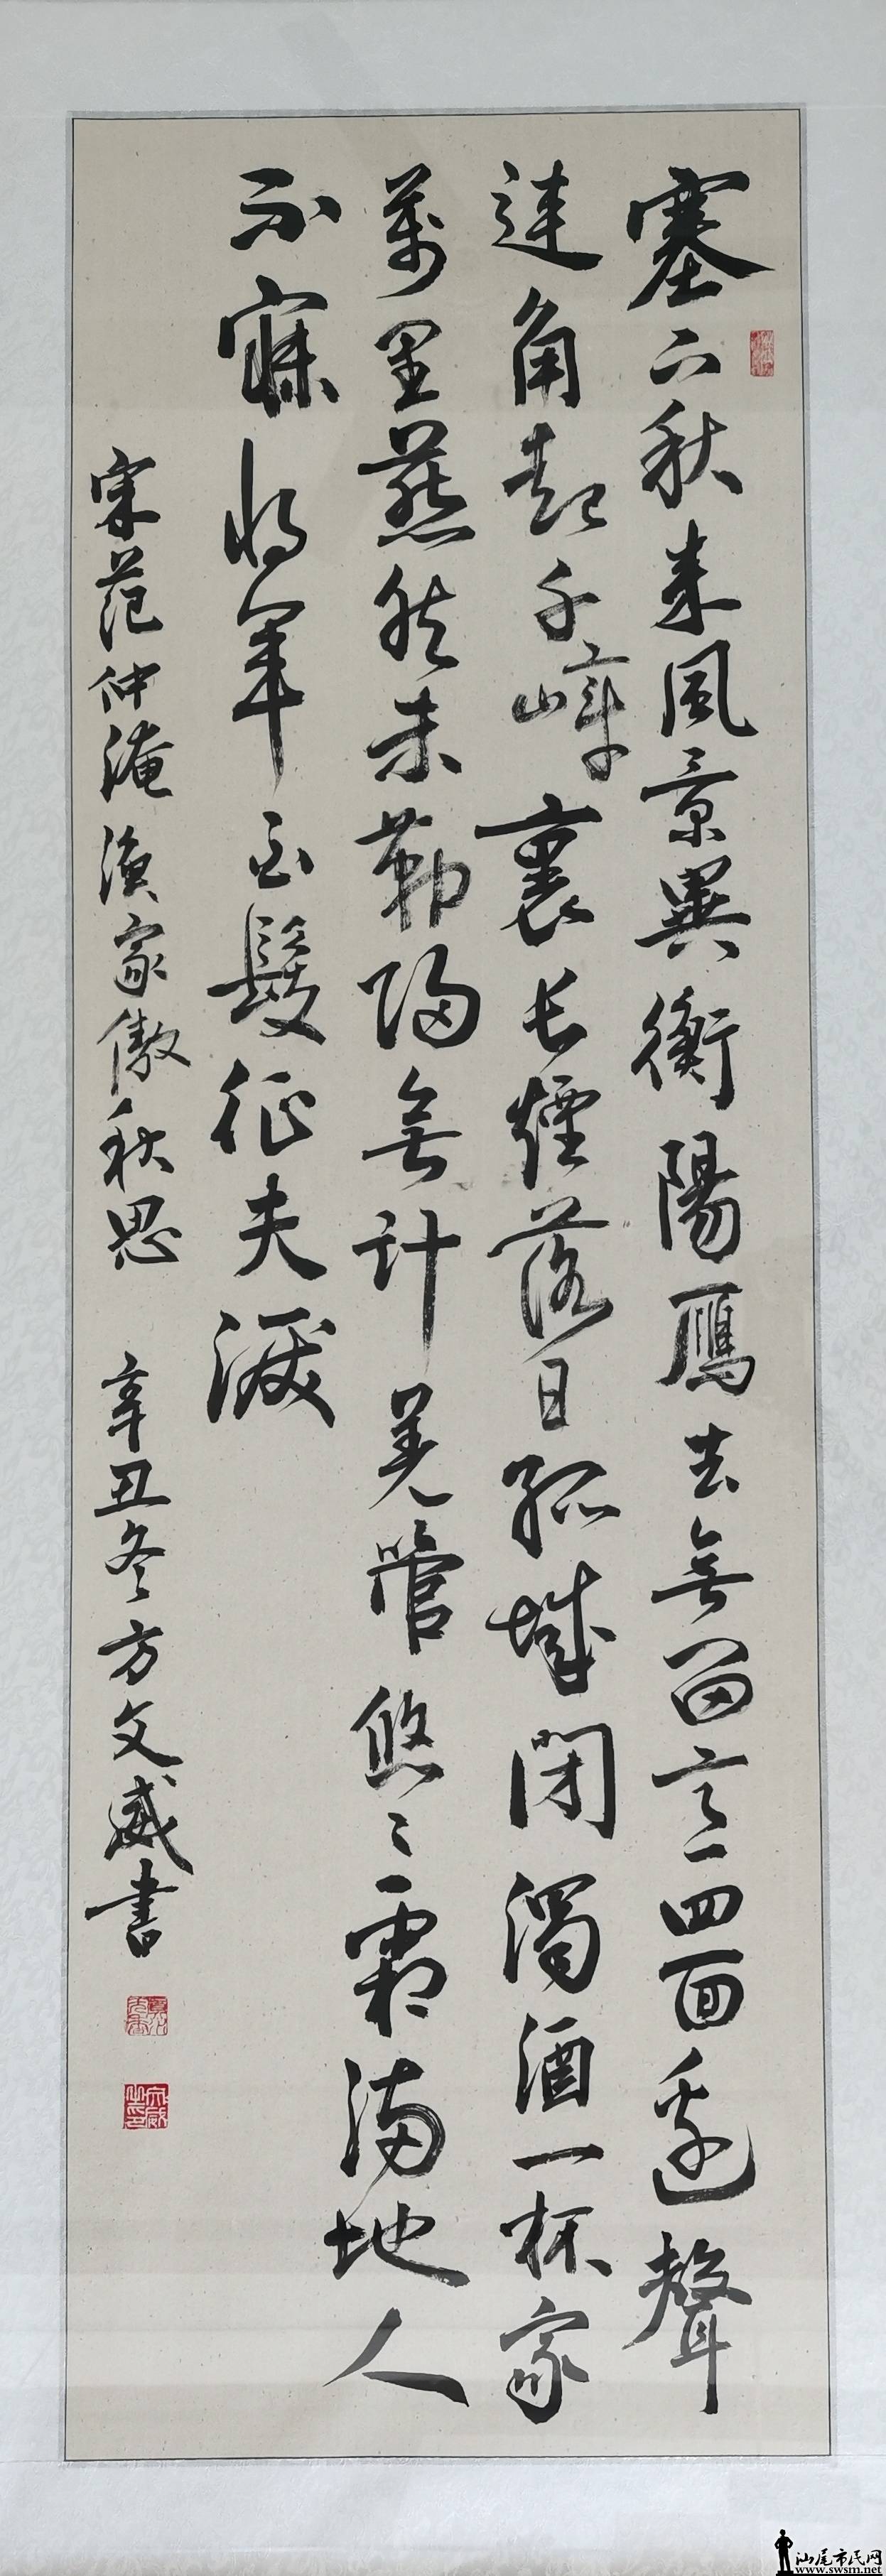 塞下秋来風景異衡陽鴈去無留意四面邊聲
連角起千嶂裏长煙落日孤城閉濁酒一杯家
萬里燕然未勒歸無计羌管悠〻霜满地人
不寐将軍白髮征夫淚
宋范仲淹漁家傲秋思 辛丑冬方文威書
汕尾市民网
www.swsm.net